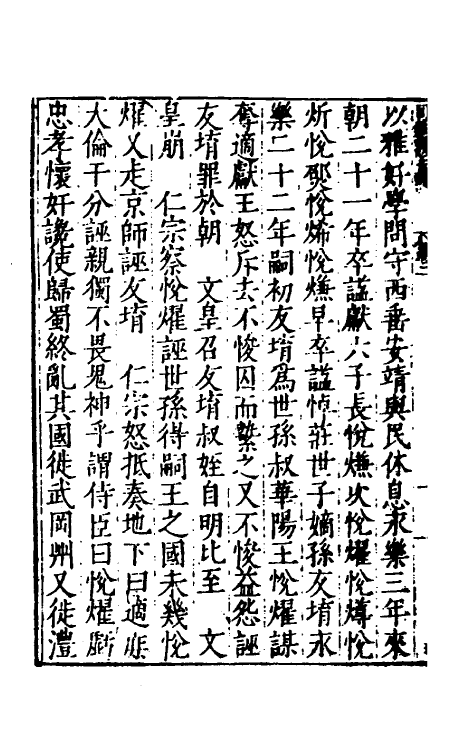 以雅好學問守西番安靖與民休息永樂三年來
朝二十一年卒謚獻六子長悅熑次悅燿悅燇悅
炘悅𤊟悅烯悅熑早卒謚悼莊世子嫡孫友堉永
樂二十二年嗣初友堉為世孫叔華陽王悅燿謀
奪適獻王怒斥去不悛囚而繫之又不悛益怨誣
友堉罪於朝　文皇召友堉叔姪自明比至　文
皇崩　仁宗察悅燿誣世孫得嗣王之國未幾悅
燿乂走京師誣友堉　仁宗怒抵奏地下曰適庶
大倫干分誣親獨不畏鬼神乎謂侍臣曰悅燿虧
忠孝懷奸讒使歸蜀終亂其國徙武岡州又徙澧